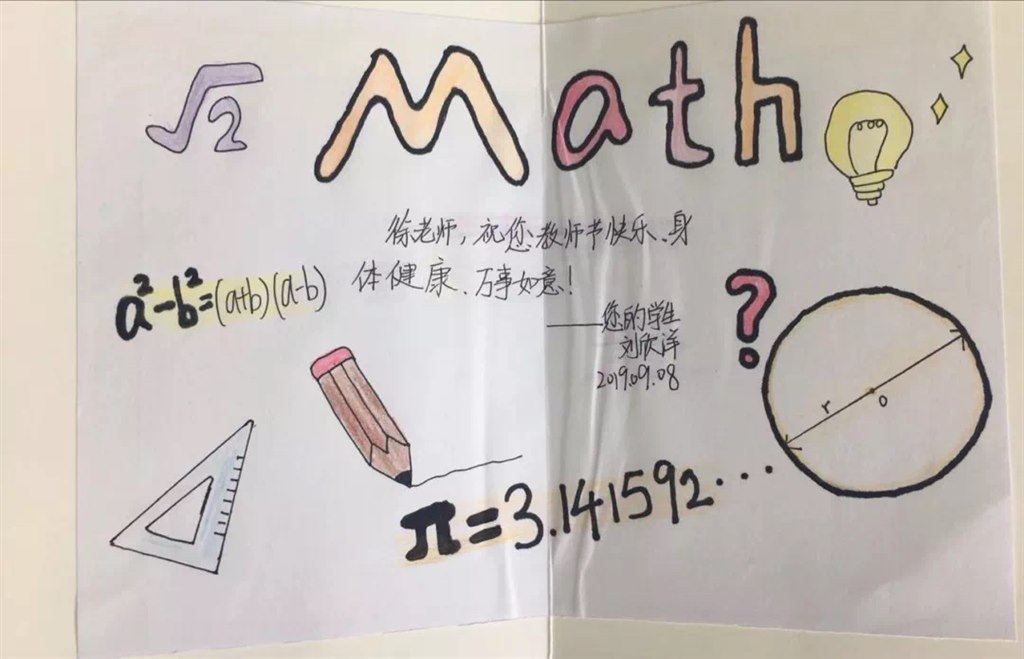 √2
Math
徐老师,祝您教师节快乐、身
体健康、万事如意!
a²-b²=(a+b)(a-b)
——您的学生
刘欣洋
2019.09.08
?
r
o
π=3.141592...